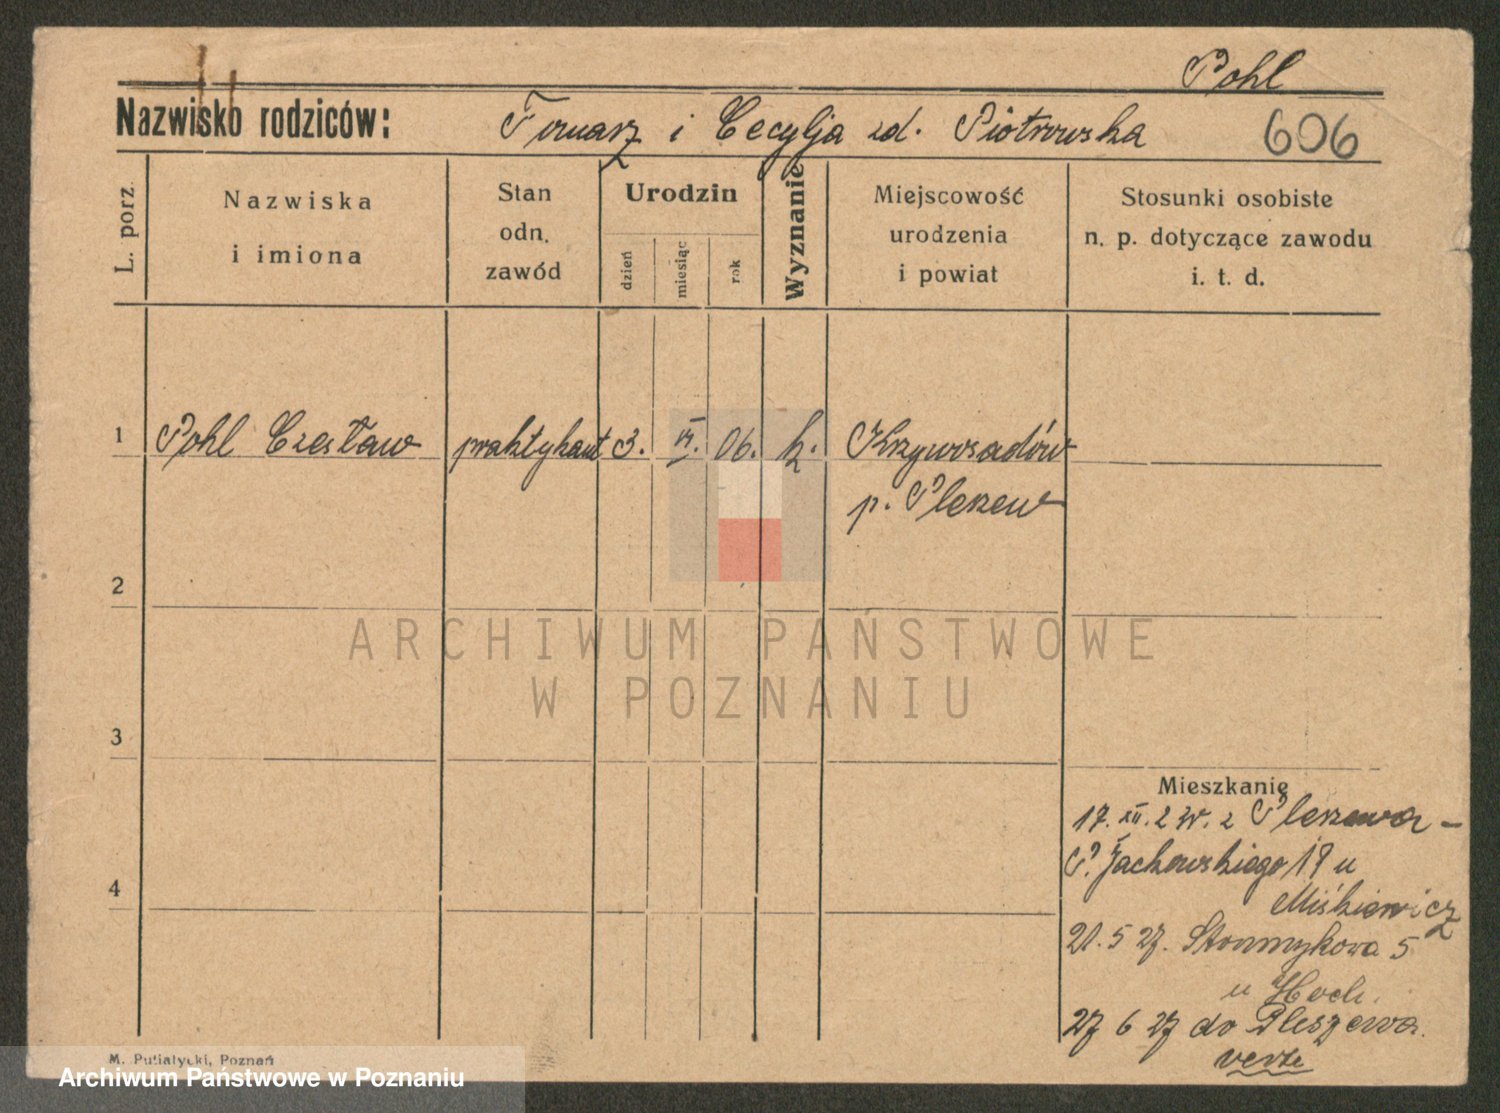 Pohl
Nazwisko rodziców: Tomasz i Cecylja zd. Piotrowska 606
L. porz.
Nazwiska i imiona
Stan odn. zawód
Urodzin
dzień
miesiąc
rok
Wyznanie
Miejscowość urodzenia i powiat
Stosunki osobiste n. p. dotyczące zawodu i. t. d.
1 Pohl Czesław praktykant 3. VI. 06. k. Krzywosadów
p. Pleszew
2
ARCHIWUM PAŃSTWOWE
W POZNANIU
3
Mieszkanie
17. XII. 2 z Pleszewa -
4
Miśkiewicz
21. 5 27. 5
u Hoch.
27 6 27 do Pleszewa.
verte
M. Putiatycki, Poznań
Archiwum Państwowe w Poznaniu